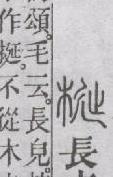 梴長
頌。毛云。長皃。
作挻。不從木